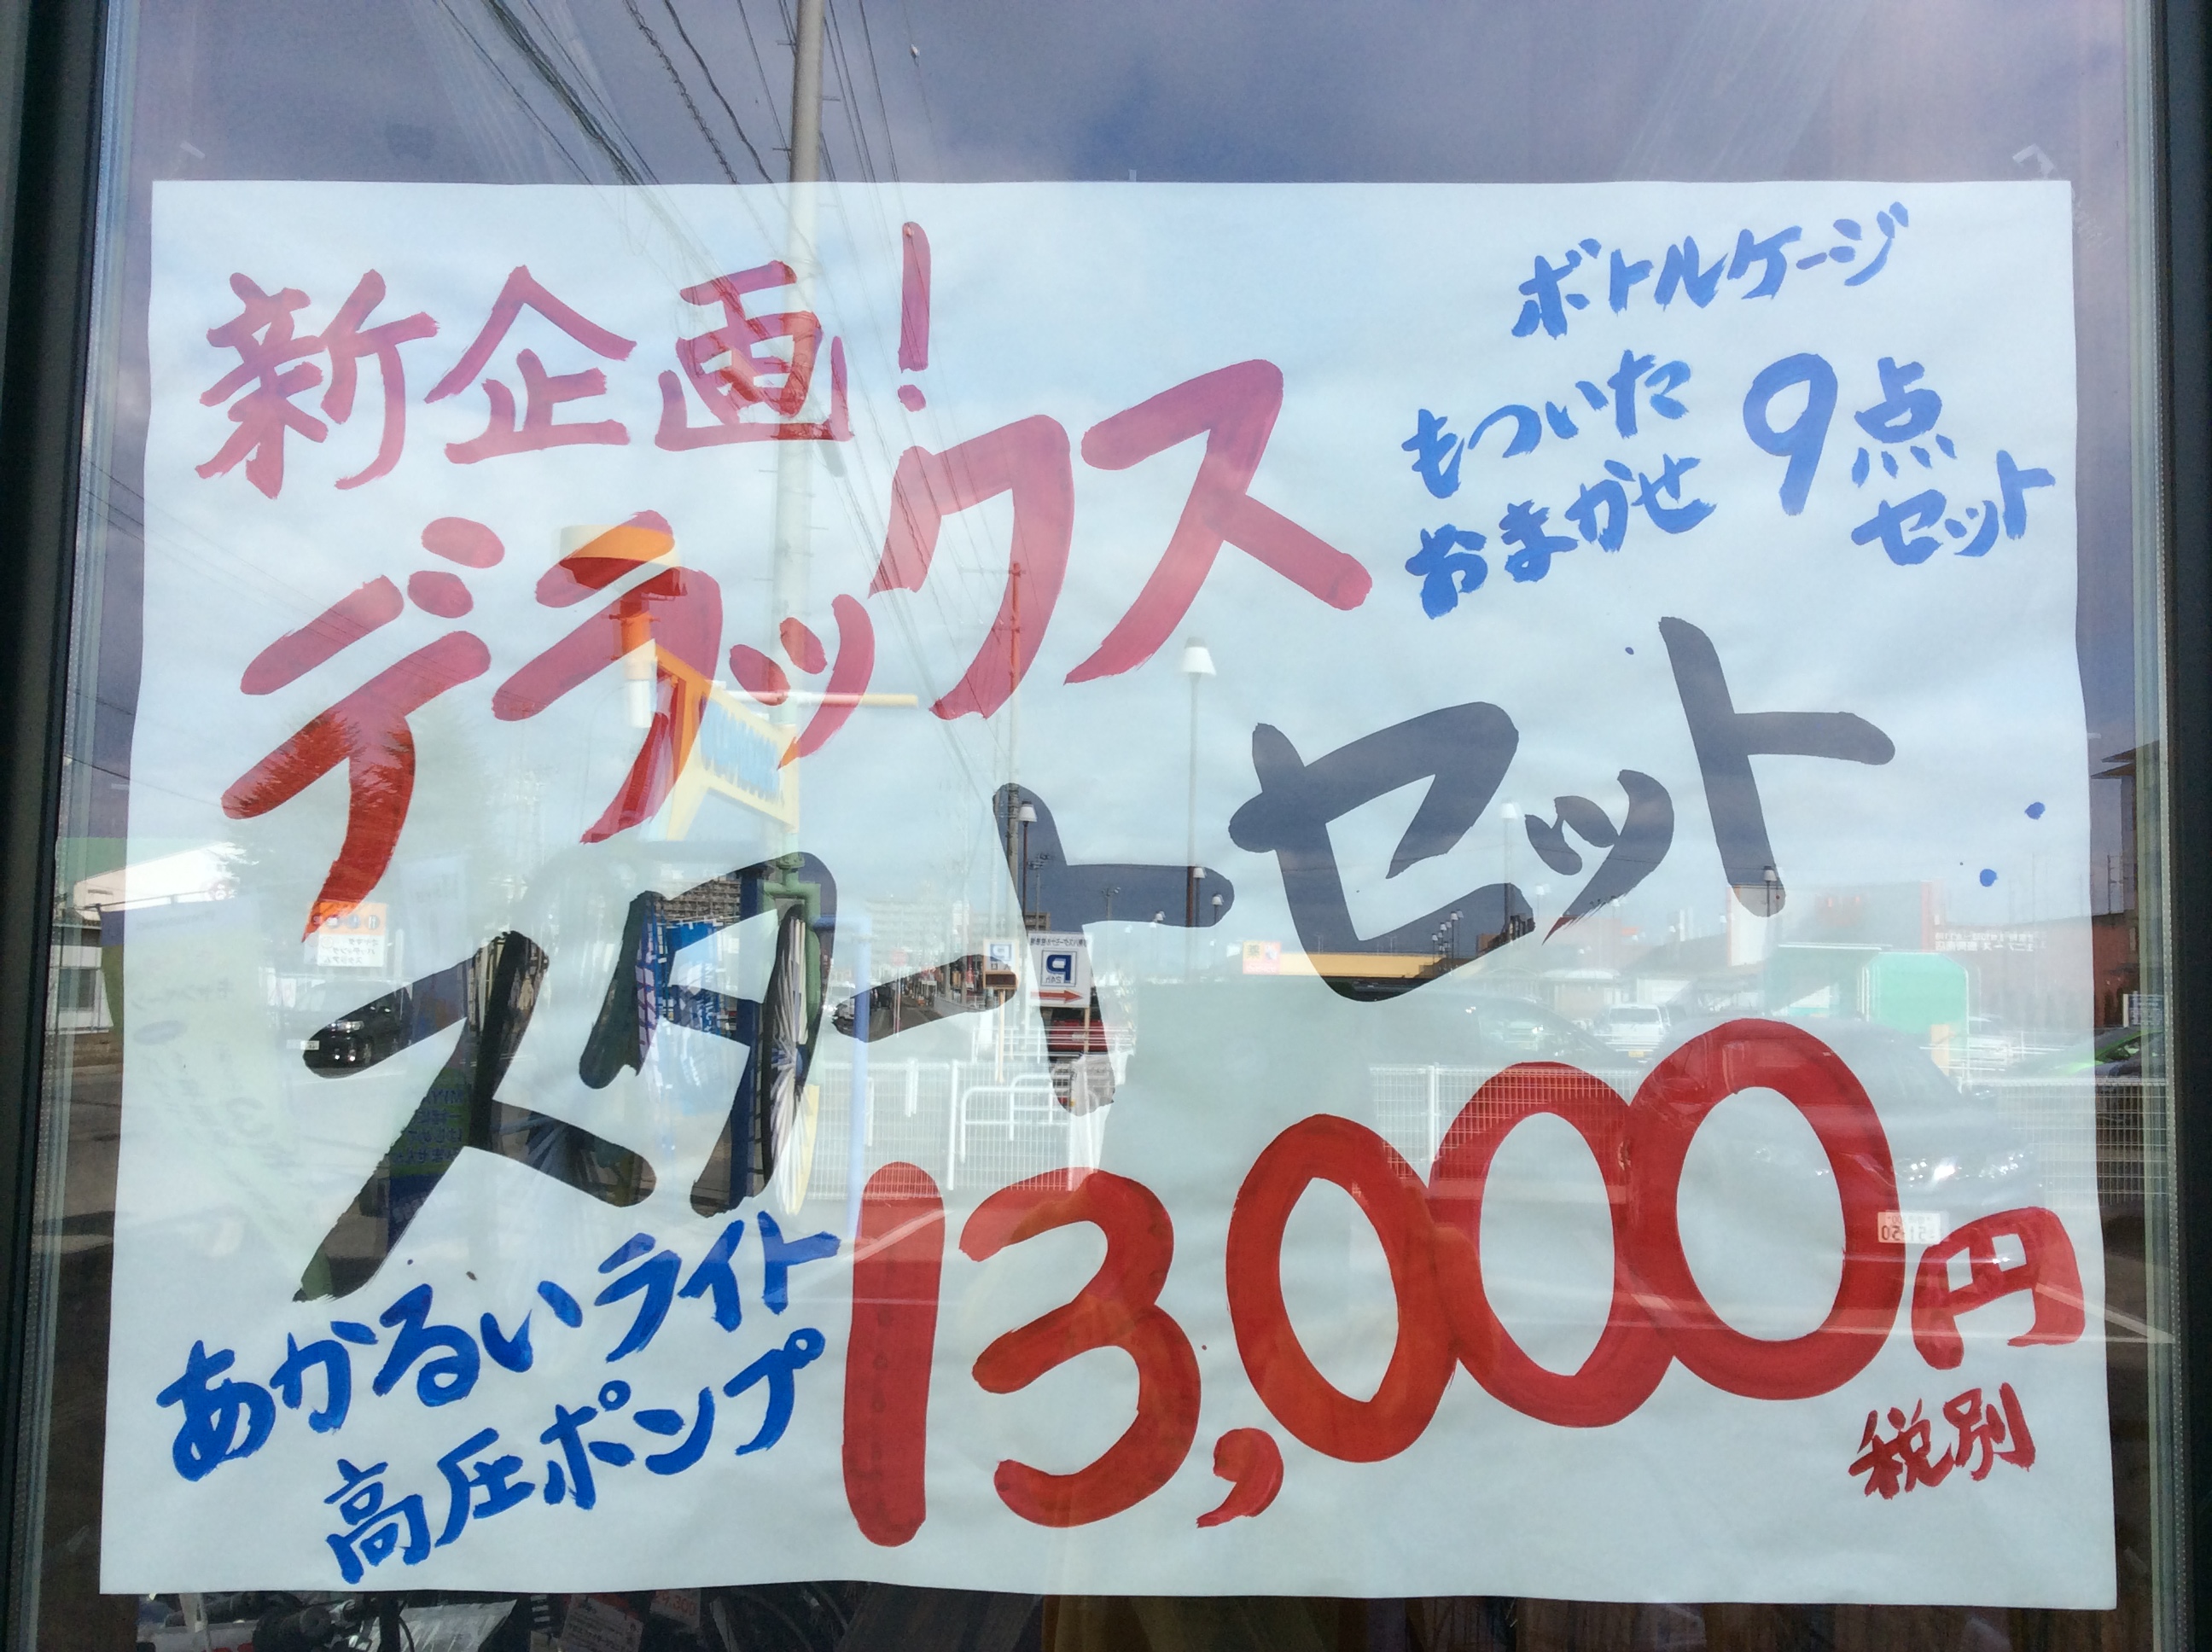 新企画!
デラックス
ボトルケージ
もついた
おまかせ
9点
セット
スタートセット
あかるいライト
高圧ポンプ
13,000円
税別
P
24h